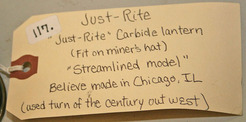 117.
Just-Rite
"Just-Rite" Carbide lantern
(Fit on miner's hat)
"Streamlined model"
Believe made in Chicago, IL
(used turn of the century out west)